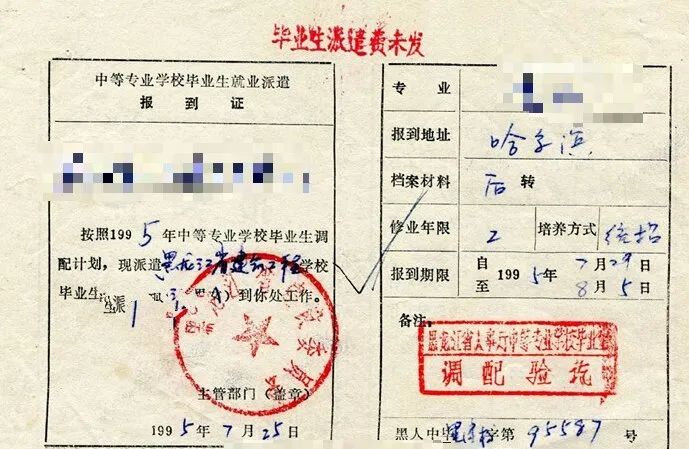 毕业生派遣费未发
中等专业学校毕业生就业派遣
报到证
按照1995年中等专业学校毕业生调
配计划，现派遣黑龙江省建筑工程学校
毕业生
派1
到你处工作。
主管部门（盖章）
1995年7月25日
专业
报到地址 哈尔滨
档案材料 后转
修业年限 2 培养方式 统招
报到期限 自 1995年7月29日
至 8月5日
备注：
黑龙江省人事厅中等专业学校毕业
调配验讫
黑人中 字第95587号